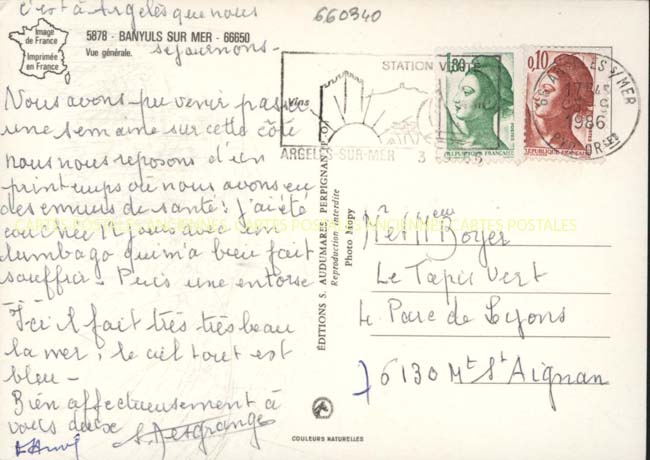 c'est à Argelès que nous
séjournons -
660340
Image
de France
Imprimée
en France
5878 - BANYULS SUR MER - 66650
Vue générale.
Nous avons pu venir passer
une semaine sur cette côte
nous nous reposons d'un
printemps où nous avons eu
des ennuis de santé ! J'ai été
couchée 11 jours avec un
lumbago qui m'a bien fait
souffrir - Puis une entorse
---
Ici il fait très très beau
la mer, le ciel tout est
bleu -
Bien affectueusement à
vous deux
S. Desgrange
STATION VERTE
Vins
ARGELES-SUR-MER
1,80
REPUBLIQUE FRANÇAISE
0,10
REPUBLIQUE FRANÇAISE
66 ARGELES S/MER
1986
PYR. ORles
ÉDITIONS S. AUDUMARES PERPIGNAN
Reproduction interdite
Photo Mopy
Mr et Mme Boyer
Le Tapis Vert
4. Parc de Lyons
76130 Mt St Aignan
COULEURS NATURELLES
CARTES POSTALES ANCIENNES CARTES POSTALES ANCIENNES CARTES POSTALES